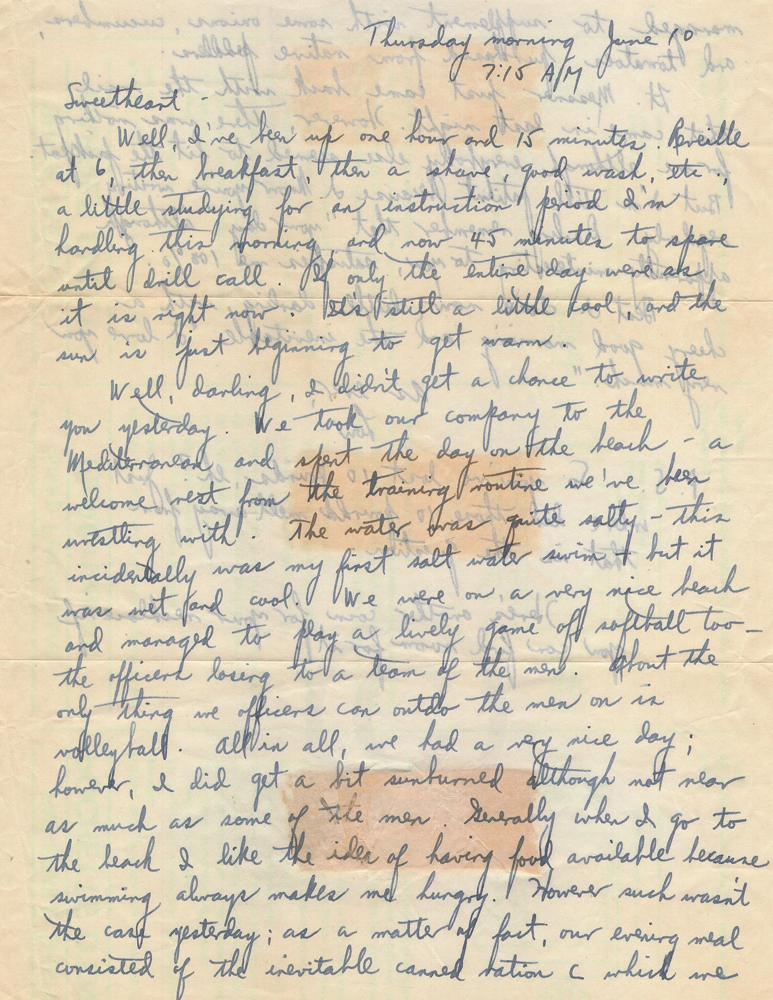 Thursday morning June 10
7:15 A/M
Sweetheart -
Well, I've been up one hour and 15 minutes. Reveille
at 6, then breakfast, then a shave, good wash, etc.,
a little studying for an instruction period I'm
handling this morning, and now 45 minutes to spare
until drill call. If only the entire day were as
it is right now. It's still a little cool, and the
sun is just beginning to get warm.
Well, darling, I didn't get a chance to write
you yesterday. We took our company to the
Mediterranean and spent the day on the beach - a
welcome rest from the training routine we've been
wrestling with. The water was quite salty - this
incidentally was my first salt water swim + but it
was wet and cool. We were on a very nice beach
and managed to play a lively game of softball too -
the officers losing to a team of the men. About the
only thing we officers can outdo the men on is
volleyball. All in all, we had a very nice day;
however, I did get a bit sunburned although not near
as much as some of the men. Generally when I go to
the beach I like the idea of having food available because
swimming always makes me hungry. However such wasn't
the case yesterday; as a matter of fact, our evening meal
consisted of the inevitable canned ration C which we